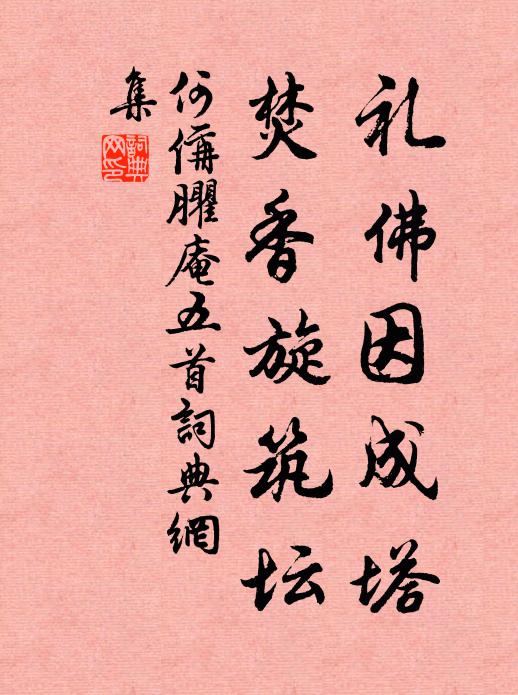 礼佛因成塔
焚香旋筑坛
何偁臞庵五首詞典網
集
詞典
网印